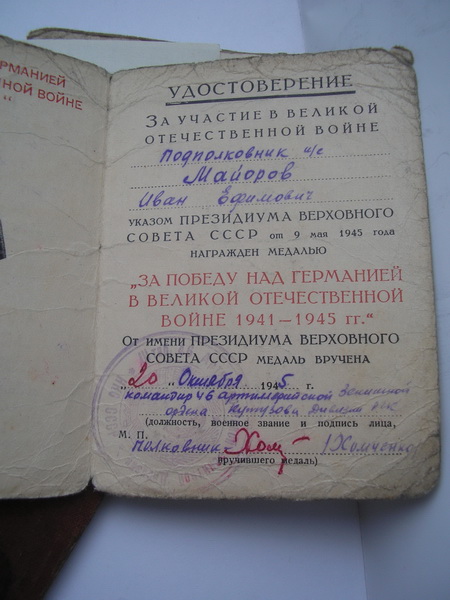 РМАНИЕЙ
ЕННОЙ ВОЙНЕ
"
УДОСТОВЕРЕНИЕ
ЗА УЧАСТИЕ В ВЕЛИКОЙ
ОТЕЧЕСТВЕННОЙ ВОЙНЕ
Подполковник и/с
Майоров
Иван Ефимович
УКАЗОМ ПРЕЗИДИУМА ВЕРХОВНОГО
СОВЕТА СССР от 9 мая 1945 года
НАГРАЖДЕН МЕДАЛЬЮ
„ЗА ПОБЕДУ НАД ГЕРМАНИЕЙ
В ВЕЛИКОЙ ОТЕЧЕСТВЕННОЙ
ВОЙНЕ 1941—1945 гг.“
От имени ПРЕЗИДИУМА ВЕРХОВНОГО
СОВЕТА СССР МЕДАЛЬ ВРУЧЕНА
„20 „ Октября 1945 г.
командир 46 артиллерийской Зенитной
ордена Кутузова Дивизии РГК
(должность, военное звание и подпись лица,
М. П.
Полковник Хом /Хомченко
вручившего медаль)